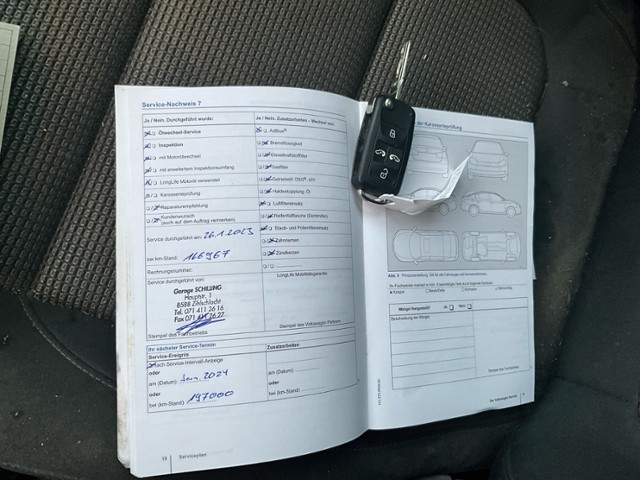 Service-Nachweis 7
Ja / Nein, Durchgeführt wurde:
Ölwechsel-Service
Inspektion
mit Motorölwechsel
mit erweitertem Inspektionsumfang
LongLife Motoröl verwendet
Karosserieprüfung
Reparaturempfehlung
Kundenwunsch
(auch auf dem Auftrag vermerken)
Service durchgeführt am: 26.1.2023
bei km-Stand: 166967
Rechnungsnummer:
Service durchgeführt von:
Garage SCHILLING
Hauptstr. 1
8588 Zihlschlacht
Tel. 071 411 26 16
Fax 071
Ja / Nein, Zusatzarbeiten - Wechsel von:
AdBlue®
Bremsflüssigkeit
Kraftstofffilter
Haldexkupplung -Öl
Luftfiltereinsatz
Staub- und Pollenfiltereinsatz
Zahnriemen
Zündkerzen
LongLife Mobilitätsgarantie
Stempel des Volkswagen Partners
Ihr nächster Service-Termin:
Service-Ereignis
Nach Service-Intervall-Anzeige
oder
am (Datum): Jan. 2024
oder
bei (km-Stand): 197000
Zusatzarbeiten:
am (Datum):
oder
bei (km-Stand):
18 Serviceplan
der Karosserieprüfung
Mängel festgestellt?
Ja
Nein
Beschreibung der Mängel: